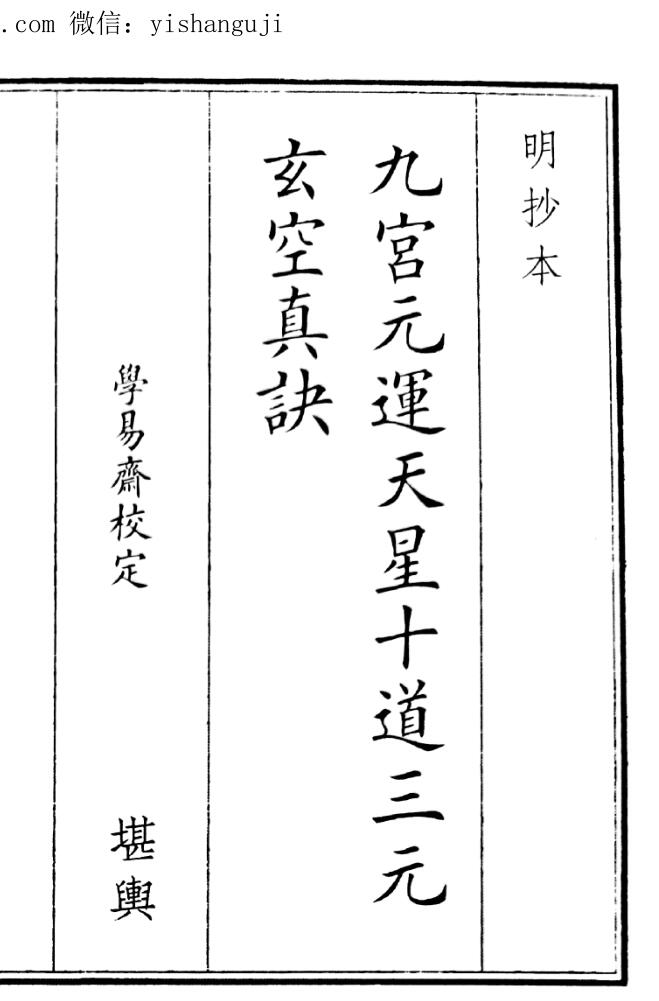 .com 微信：yishanguji
明抄本
九宮元運天星十道三元
玄空真訣
學易齋校定
堪輿